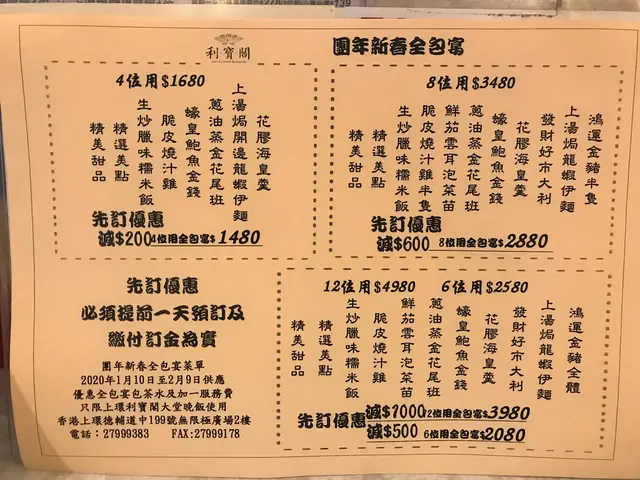 利寶閣
團年新春全包宴
4位用$1680
花膠海皇羹
上湯焗開邊龍蝦伊麵
蔥油蒸金花尾班
蠔皇鮑魚金錢
脆皮燒汁雞
生炒臘味糯米飯
精選美點
精美甜品
先訂優惠
減$200 4位用全包宴$1480
8位用$3480
鴻運金豬半隻
上湯焗龍蝦伊麵
發財好市大利
花膠海皇羹
蠔皇鮑魚金錢
蔥油蒸金花尾班
鮮茄雲耳泡菜苗
脆皮燒汁雞半隻
生炒臘味糯米飯
精選美點
精美甜品
先訂優惠
減$600 8位用全包宴$2880
先訂優惠
必須提前一天預訂及
繳付訂金為實
團年新春全包宴菜單
2020年1月10日至2月9日供應
優惠全包宴包茶水及加一服務費
只限上環利寶閣大堂晚飯使用
香港上環德輔道中199號無限極廣場2樓
電話：27999383 FAX:27999178
12位用$4980 6位用$2580
鴻運金豬全體
上湯焗龍蝦伊麵
發財好市大利
花膠海皇羹
蠔皇鮑魚金錢
蔥油蒸金花尾班
鮮茄雲耳泡菜苗
脆皮燒汁雞
生炒臘味糯米飯
精選美點
精美甜品
先訂優惠
減$1000 12位用全包宴$3980
減$500 6位用全包宴$2080